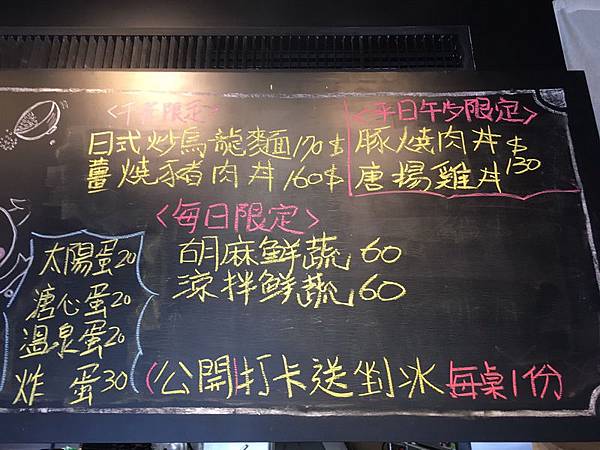 <限定>
日式炒烏龍麵170$
薑燒豬肉丼160$
<平日午步限定>
豚燒肉丼$
唐揚雞丼130
<每日限定>
胡麻鮮蔬60
涼拌鮮蔬60
太陽蛋20
溏心蛋20
溫泉蛋20
炸蛋30
(公開打卡送剉冰 每桌1份